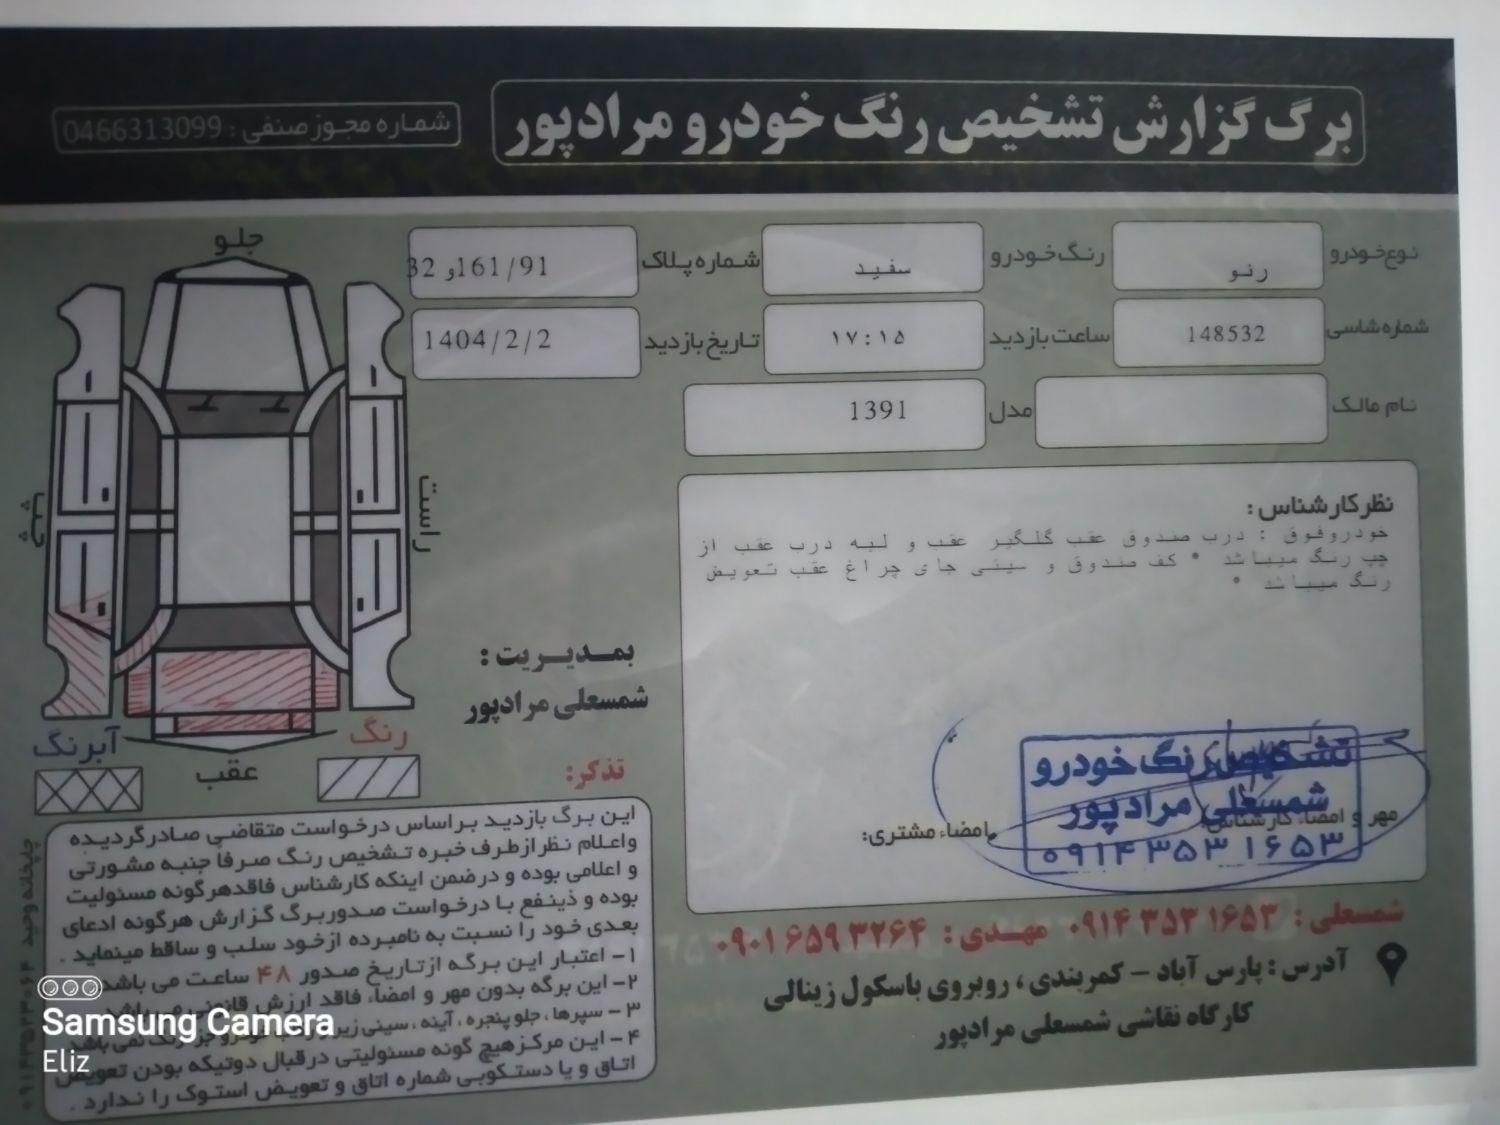 برگ گزارش تشخیص رنگ خودرو مرادپور
شماره مجوز صنفی : 0466313099
نوع خودرو
رنو
رنگ خودرو
سفید
شماره پلاک
161/91و 32
شماره شاسی
148532
ساعت بازدید
۱۷:۱۵
تاریخ بازدید
1404/2/2
نام مالک
مدل
1391
جلو
چپ
راست
عقب
آبرنگ
رنگ
نظر کارشناس :
خودروفوق : درب صندوق عقب گلگیر عقب و لبه درب عقب از
چپ رنگ میباشد * کف صندوق و سینی جای چراغ عقب تعویض
رنگ میباشد *
بمدیریت :
شمسعلی مرادپور
مهر و امضاء کارشناس:
امضاء مشتری:
تشخیص رنگ خودرو
شمسعلی مرادپور
۰۹۱۴۳۵۳۱۶۵۳
تذکر:
این برگ بازدید براساس درخواست متقاضی صادر گردیده
واعلام نظر از طرف خبره تشخیص رنگ صرفاً جنبه مشورتی
و اعلامی بوده و در ضمن اینکه کارشناس فاقد هرگونه مسئولیت
بوده و ذینفع با درخواست صدور برگ گزارش هرگونه ادعای
بعدی خود را نسبت به نامبرده از خود سلب و ساقط مینماید .
۱- اعتبار این برگه از تاریخ صدور ۴۸ ساعت می باشد
۲- این برگه بدون مهر و امضاء فاقد ارزش قانونی می باشد
۳- سپرها ، جلو پنجره ، آینه ، سینی زیر خودرو جز رنگ نمی باشد
۴- این مرکز هیچ گونه مسئولیتی در قبال دوتیکه بودن تعویض
اتاق و یا دستکوبی شماره اتاق و تعویض استوک را ندارد .
شمسعلی : ۰۹۱۴ ۳۵۳ ۱۶۵۳ مهدی : ۰۹۰۱ ۶۵۹ ۳۲۶۴
آدرس : پارس آباد - کمربندی ، روبروی باسکول زینالی
کارگاه نقاشی شمسعلی مرادپور
چاپخانه وحید
Samsung Camera
Eliz